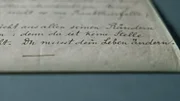 nicht aus allen seinen Rändern
: denn da ist keine Stelle
. Du musst dein Leben ändern.